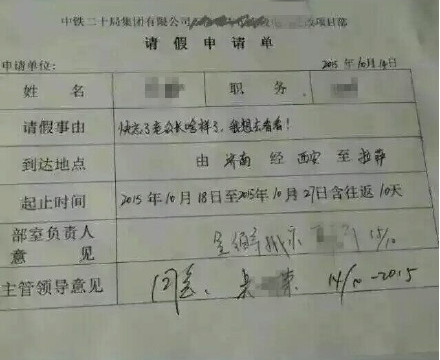 中铁二十局集团有限公司 项目部
请假申请单
申请单位: 2015年10月14日
姓名 职务
请假事由 快忘了老公长啥样了,我想去看看!
到达地点 由 济南 经 西安 至 拉萨
起止时间 2015年10月18日至2015年10月27日含往返10天
部室负责人
意见 15/10
主管领导意见 同意、 14/10-2015